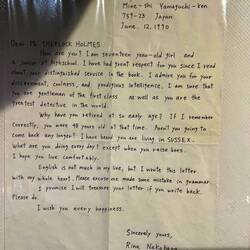 Mine-shi Yamaguchi-ken
759-23 Japan
June. 12. 1990
Dear Mr. SHERLOCK HOLMES
How are you? I am seventeen year-old girl and
a junior at highschool. I have had great respect for you since I read
about your distinguished service in the book. I admire you for your
discernment, coolness, and prodigious intelligence. I am sure that
you are gentleman of the first class as well as you are the
greatest detective in the world.
Why have you retired at so early age? If I remember
correctly, you were 48 years old at that time. Aren't you going to
come back any longer? I have heard you are living in SUSSEX.
What are you doing every day? except when you raise bees.
I hope you live comfortably.
English is not much in my line, but I wrote this letter
with my whole heart. Please excuse me made some mistake in grammar.
I promise I will treasure your letter if you write back.
Please do.
I wish you every happiness.
Sincerely yours,
Rina